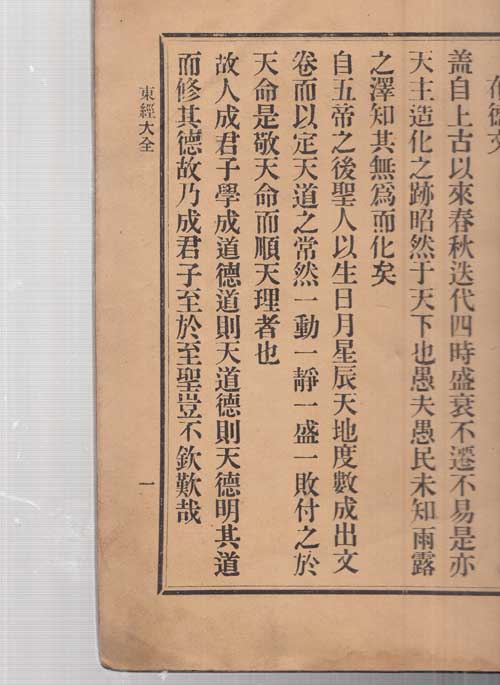 布德文
盖自上古以來春秋迭代四時盛衰不遷不易是亦
天主造化之跡昭然于天下也愚夫愚民未知雨露
之澤知其無爲而化矣
自五帝之後聖人以生日月星辰天地度數成出文
卷而以定天道之常然一動一靜一盛一敗付之於
天命是敬天命而順天理者也
故人成君子學成道德道則天道德則天德明其道
而修其德故乃成君子至於至聖豈不欽歎哉
東經大全
一